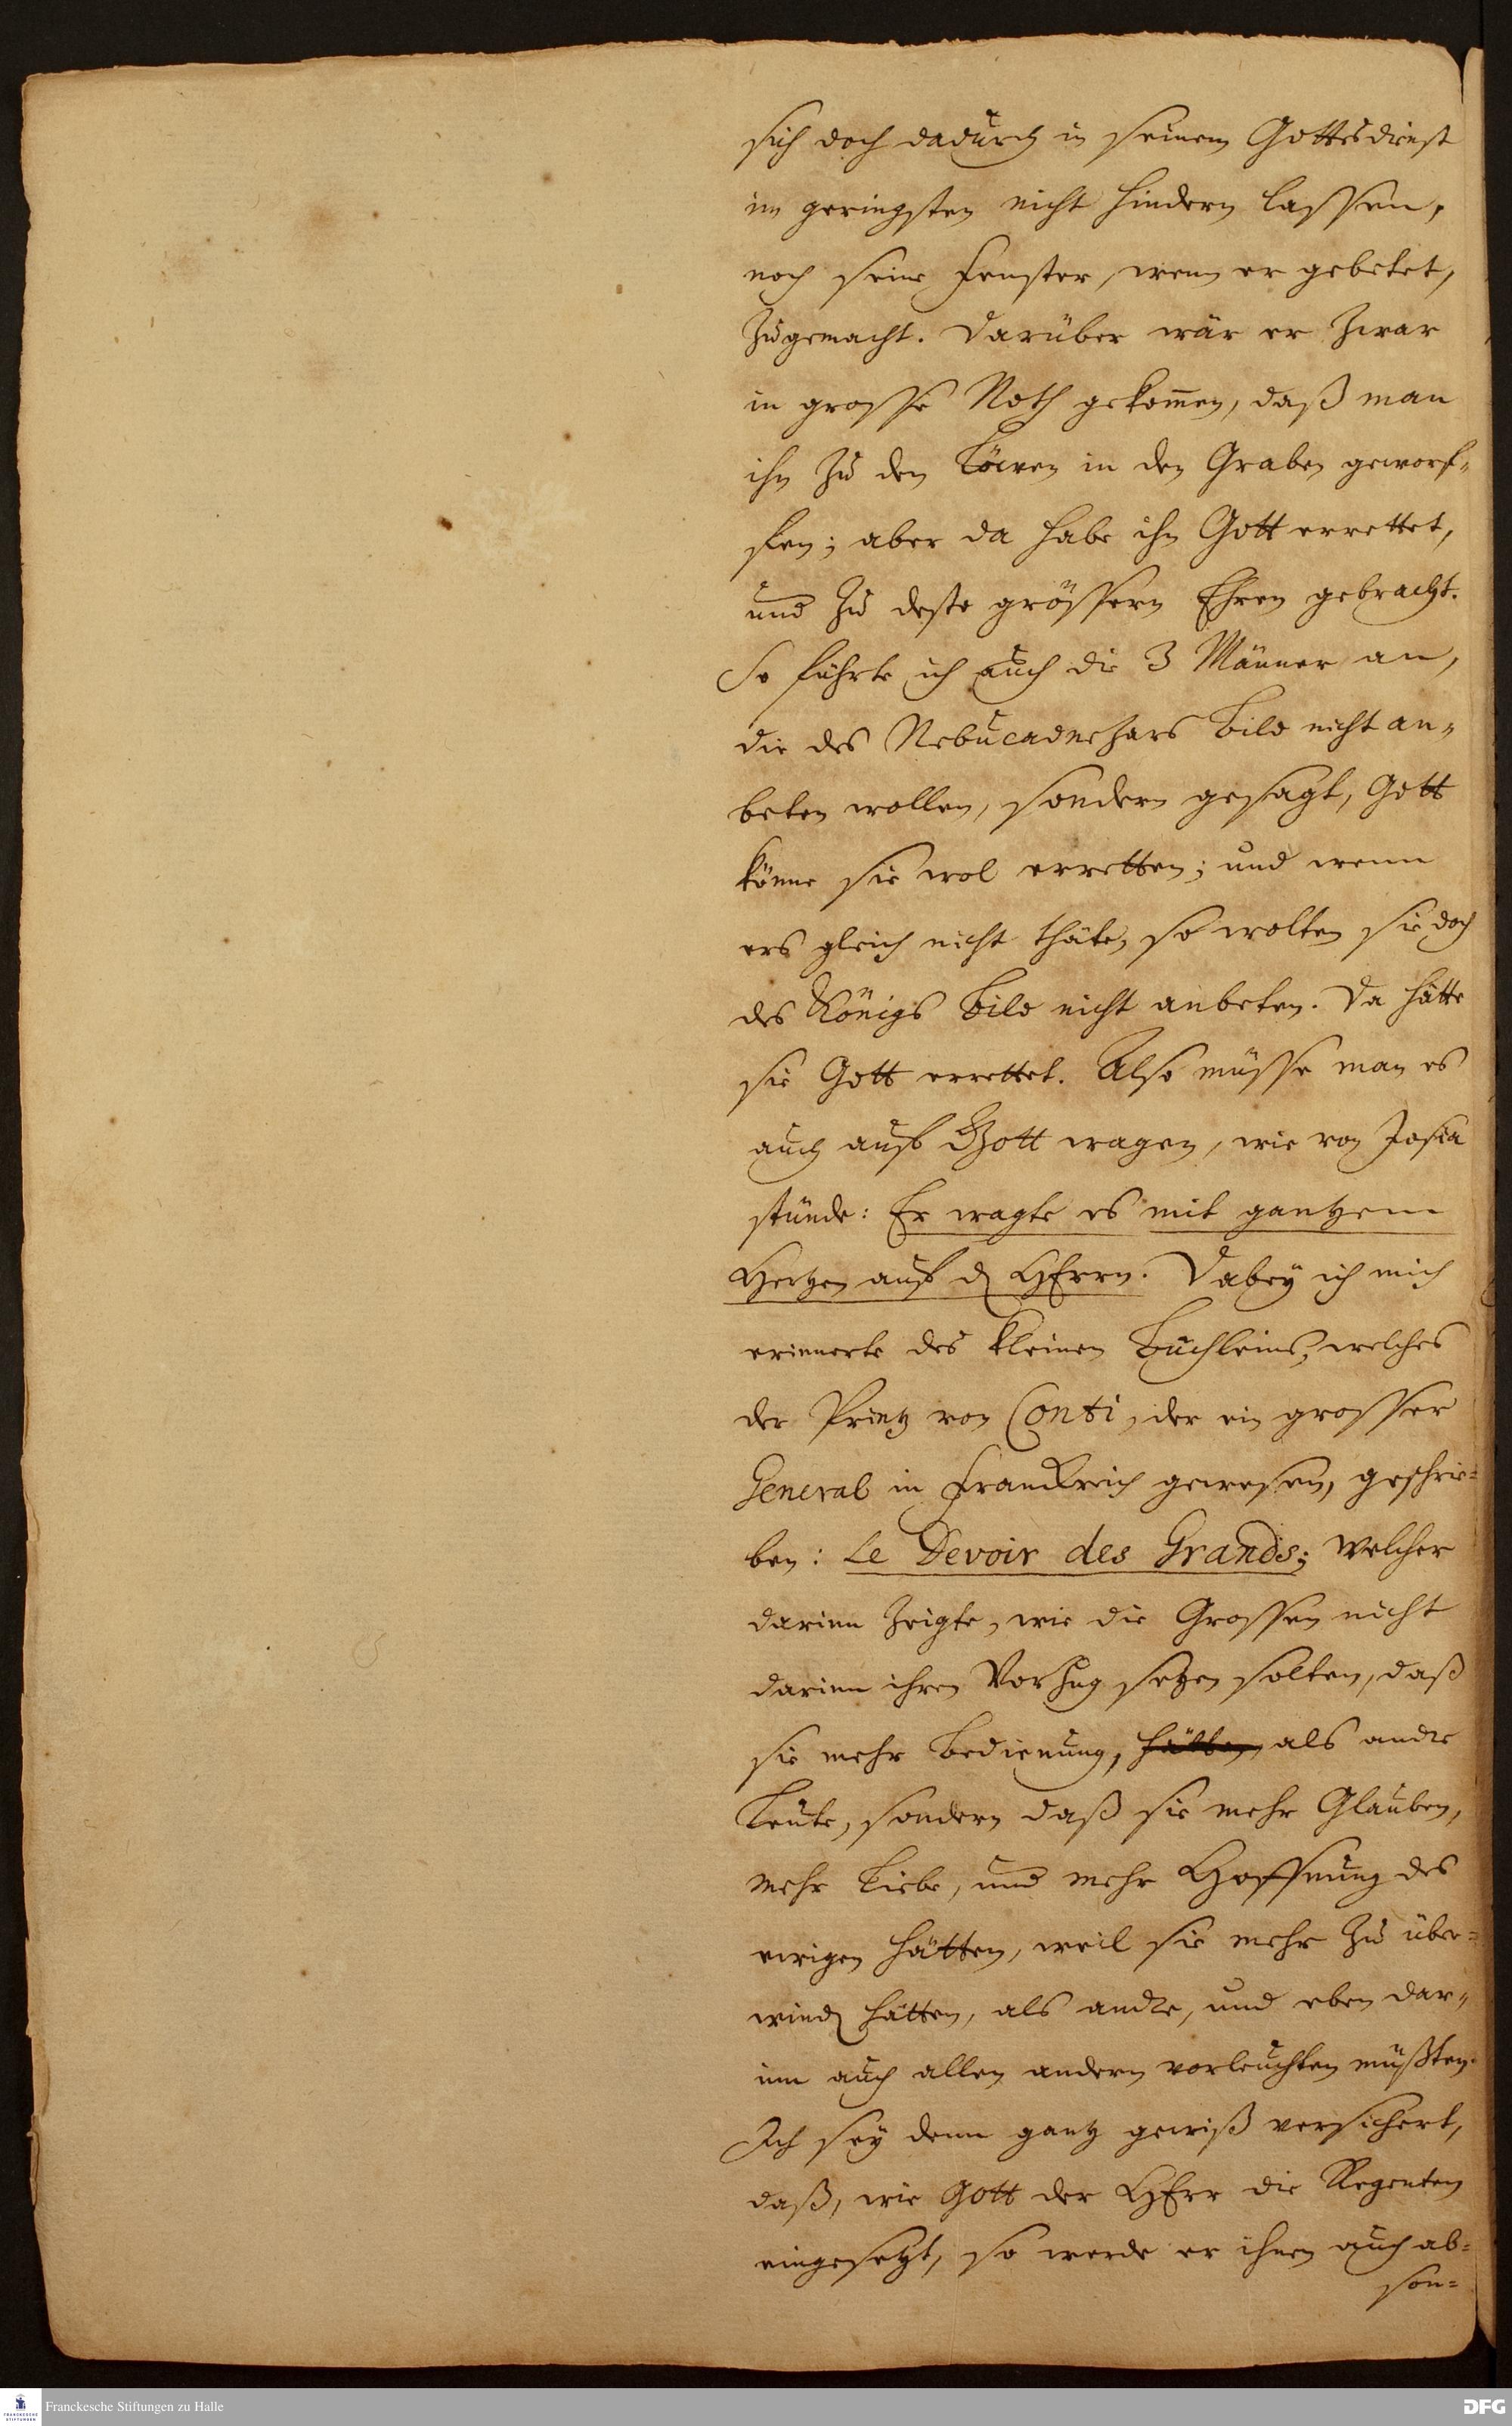 sich doch dadurch in seinem Gottesdienst
im geringsten nicht hindern lassen,
noch seine Fenster, wenn er gebetet,
zugemacht. Darüber wär er zwar
in grosse Noth gekom̅en, daß man
ihn zu den Löwen in den Graben geworf-
fen; aber da habe ihn Gott errettet,
und zu desto grössern Ehren gebracht.
So führte ich auch die 3 Männer an,
die des Nebucadnezars Bild nicht an-
beten wollen, sondern gesagt, Gott
könne sie wol erretten; und wenn
ers gleich nicht thäte, so wolten sie doch
des Königs Bild nicht anbeten. Da hätte
sie Gott errettet. Also müsse man es
auch auf Gott wagen, wie von Josia
stünde: Er wagte es mit gantzem
Hertzen auf d HErrn. Dabey ich mich
erinnerte des kleinen Büchleins, welches
der Printz von Conti, der ein grosser
General in Franckreich gewesen, geschrie-
ben: Le Devoir des Grands; welcher
darinn zeigte, wie die Grossen nicht
darinn ihren Vorzug setzen solten, daß
sie mehr Bedienung, hätten, als andre
Leute, sondern daß sie mehr Glauben,
mehr Liebe, und mehr Hoffnung des
ewigen hätten, weil sie mehr zu über-
wind hätten, als andre, und eben dar-
inn auch allen andern vorleuchten müßten.
Ich sey denn gantz gewiß versichert,
daß, wie Gott der HErr die Regenten
eingesetzt, so werde er ihnen auch ab-
son-
Franckesche Stiftungen zu Halle
DFG